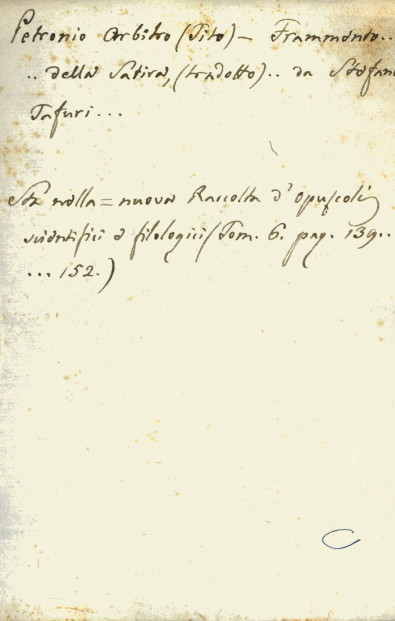 Petronio Arbitro (Tito) — Frammento..
.. della Satira, (tradotto).. da Stefano
Tafuri...
Sta nella = nuova Raccolta d'Opuscoli
scientifici e filologici (Tom. 6. pag. 139..
... 152.)